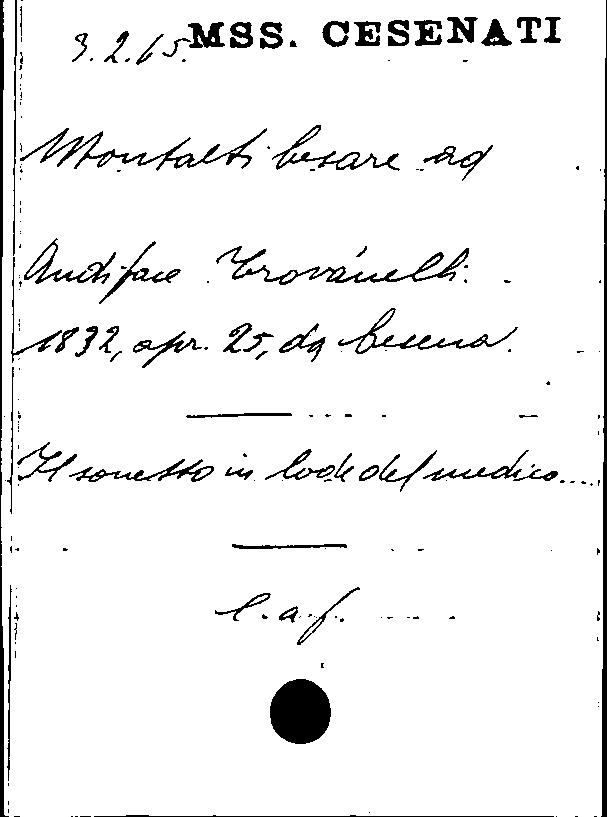 3.2.65. MSS. CESENATI
Montalti Cesare ad
Audiface Trovanelli.
1832, apr. 25, da Cesena.
Il sonetto in lode del medico....
l.a.f.